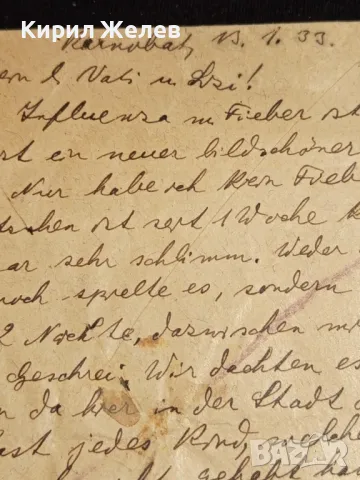 Кирил Желев
Karnobat, 13.1.33.
Vati u Lzi!
Influenza m Fieber ist
ein neuer bildschöner
Nur habe ich kein Fieber
ist seit 1 Woche
ar sehr schlimm. Weder
noch spielte es, sondern
2 Nächte, dazwischen
Geschrei. Wir dachten es
da hier in der Stadt
ast jedes Kind, welche
gehabt
BAZAR